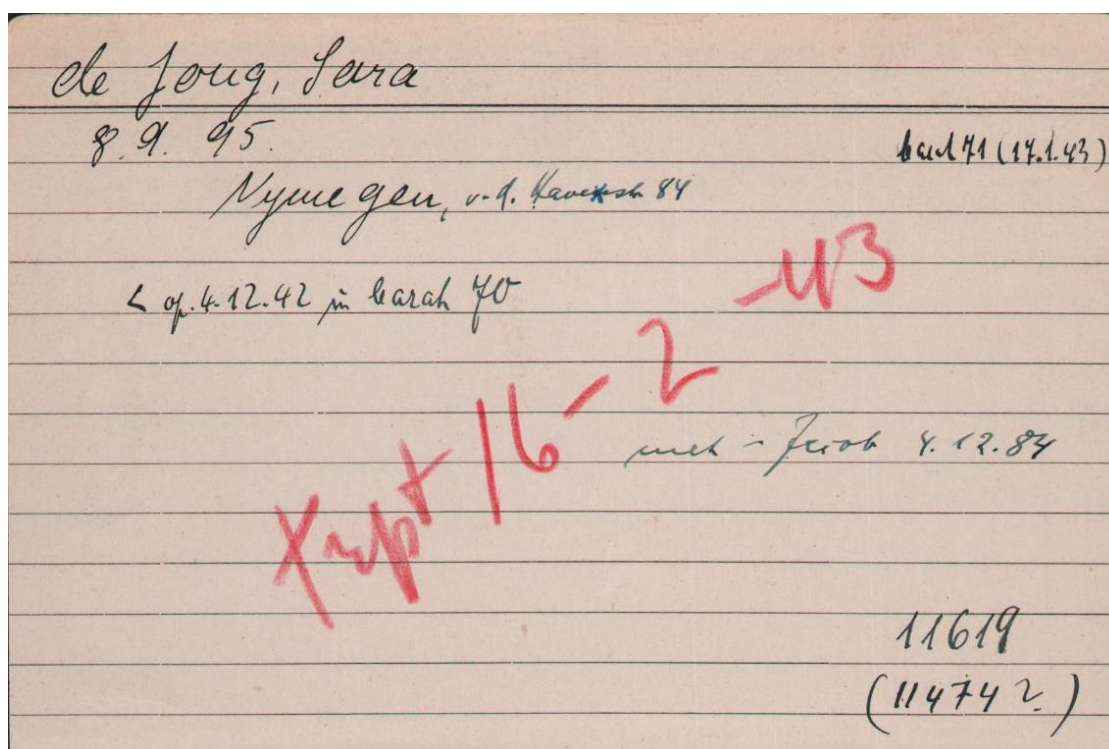 de Jong, Sara
8.9.95.
barak 71 (17.1.43)
Nymegen, v.d. 84
< op. 4.12.42 in barak 70
Trspt 16-2-43
4.12.84
11619
(11474 2.)